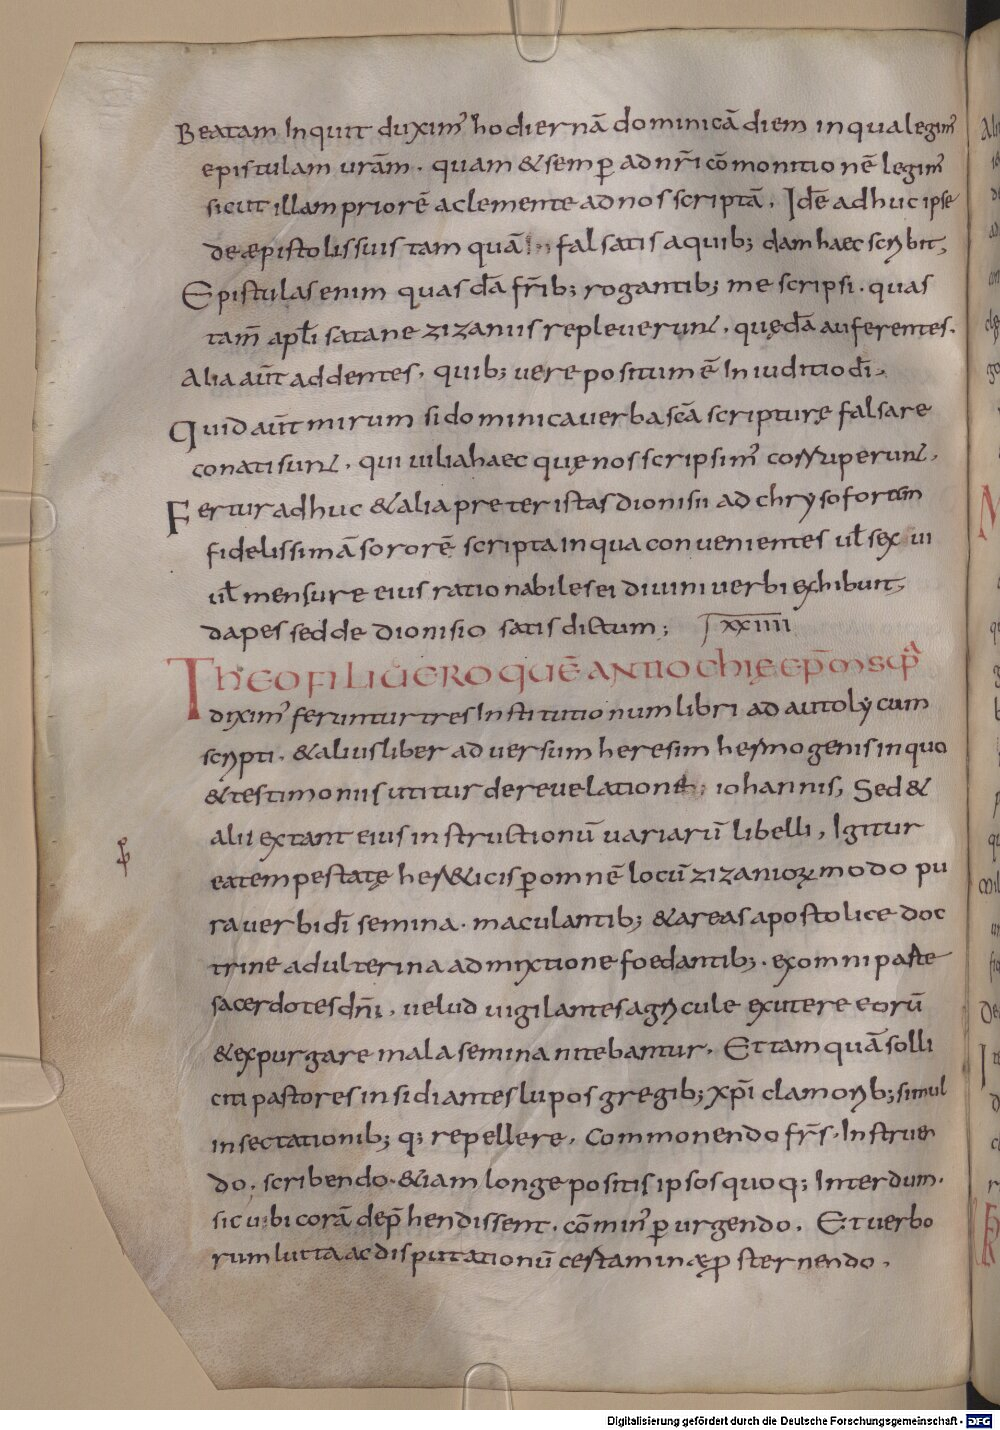 Beatam Inquit duximꝰ hodiernā dominicā diem in qua legimꝰ
epistulam vrām. quam & semꝑ ad nr̄i cōmonitionē legimꝰ
sicut illam priorē a clemente ad nos scriptā. Idē adhuc ipse
de æpistolis suis tam quā falsatis a quibꝫ dam haec scribit,
Epistulas enim quas dā fr̄ibꝫ rogantibꝫ me scripsi. quas
tam̄ apl̄i satane zizaniis repleverunt. quędā auferentes.
Alia aūt addentes. quibꝫ vere positum ē In iuditio dī.
Quid aūt mirum si dominica verba scā scripturę falsare
conati sunt. qui vilia haec quę nos scripsimꝰ corruperunt.
Fertur adhuc & alia preter istas dionisii ad chrysofortem
fidelissimā sororē scripta in qua convenientes ul̄ sex ui
ul̄ mensure eius rationabiles ei divini verbi exhibuit,
dapes sed de dionisio satis dictum; xxiiii
Theofili vero quē antiochię ep̄m sup̄
diximꝰ feruntur tres Institutionum libri ad autolycum
scripti. & alius liber adversum heresim hermogenis in quo
& testimoniis utitur de revelatione iohannis, Sed &
alii extant eius instructionū variarū libelli, Igitur
ea tempestatę her&icis ꝑ omnē locū zizaniorꝝ modo pu
ra verbi dī semina. maculantibꝫ & areas apostolice doc
trine adulterina admixtione foedantibꝫ. ex omni parte
sacerdotes dn̄i, velud vigilantes agricule excutere eorū
& expurgare mala semina nitebantur. Et tam quā solli
citi pastores insidiantes lupos gregibꝫ xp̄i clamoribꝫ simul
insectationibꝫ qꝫ repellere, Commonendo fr̄s. Instruen
do, scribendo. &iam longe positis ipsos quoqꝫ Interdum.
sic ubi corā dep̄hendissent. cōminꝰ ꝑurgendo. Et verbo
rum lucta ac disputationū certaminę ꝓsternendo.
Digitalisierung gefördert durch die Deutsche Forschungsgemeinschaft - DFG